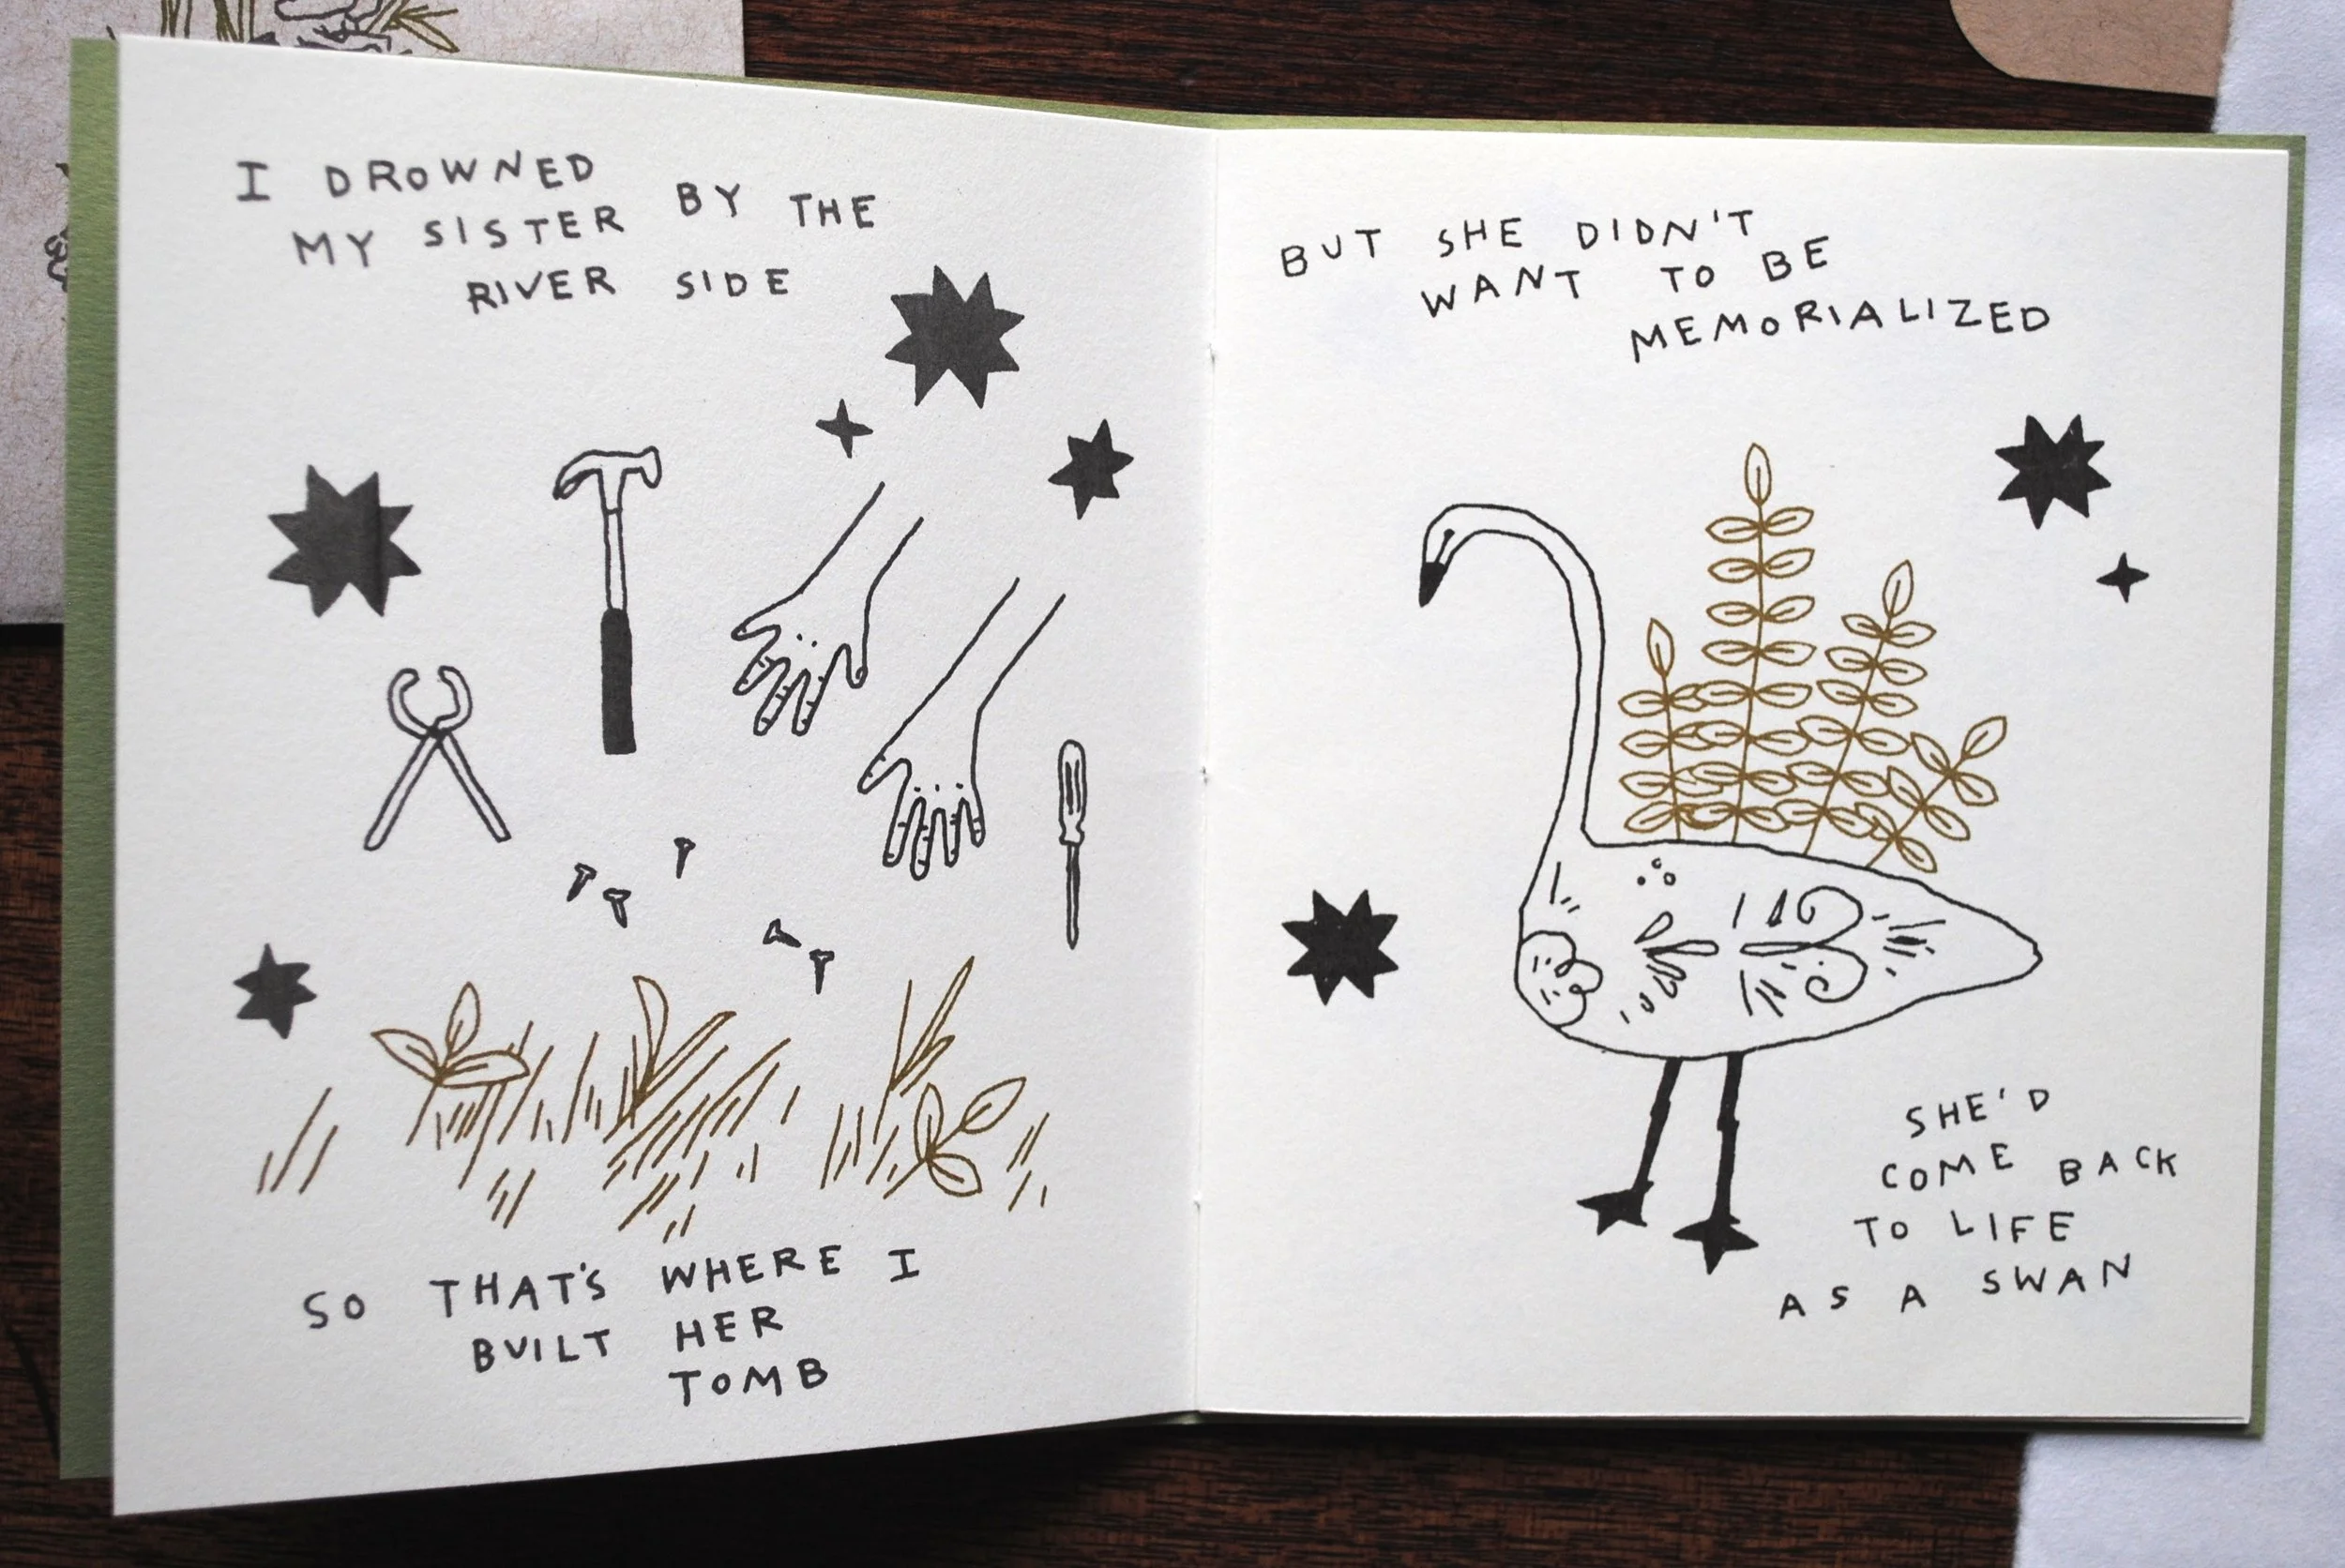 I DROWNED
MY SISTER BY THE
RIVER SIDE
SO THAT'S WHERE I
BUILT HER
TOMB
BUT SHE DIDN'T
WANT TO BE
MEMORIALIZED
SHE'D
COME BACK
TO LIFE
AS A SWAN